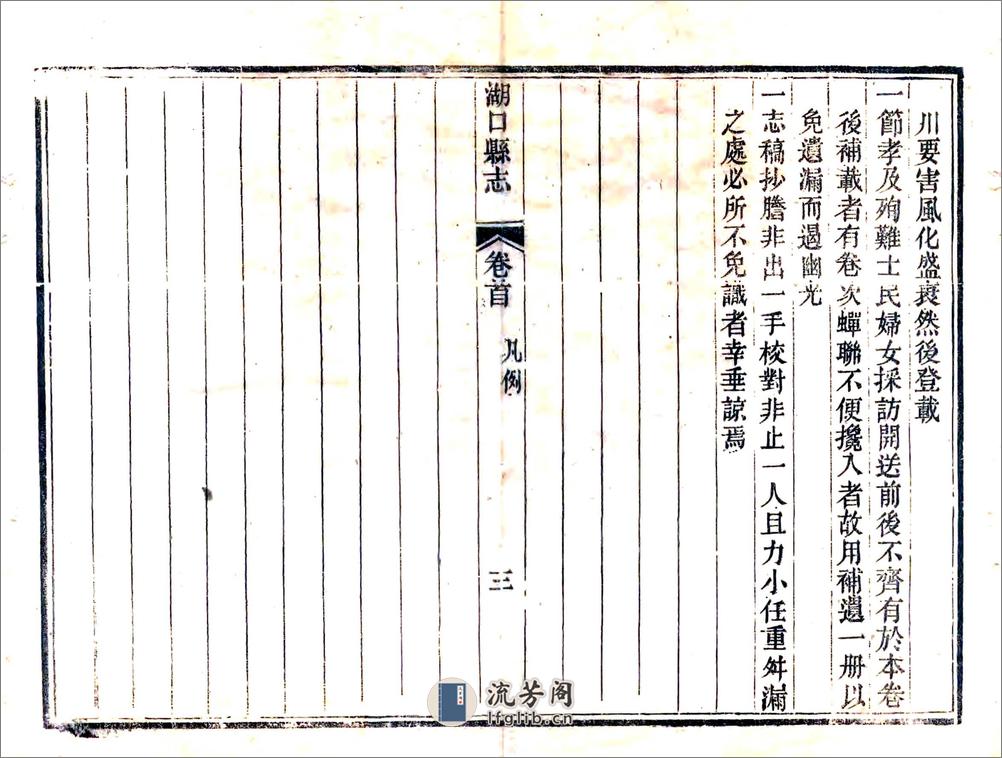 川要害風化盛衰然後登載
一節孝及殉難士民婦女採訪開送前後不齊有於本卷
後補載者有卷次蟬聯不便攙入者故用補遺一册以
免遺漏而遏幽光
一志稿抄謄非出一手校對非止一人且力小任重舛漏
之處必所不免識者幸垂諒焉
湖口縣志
卷首
凡例
三
流芳阁
lfglib.cn